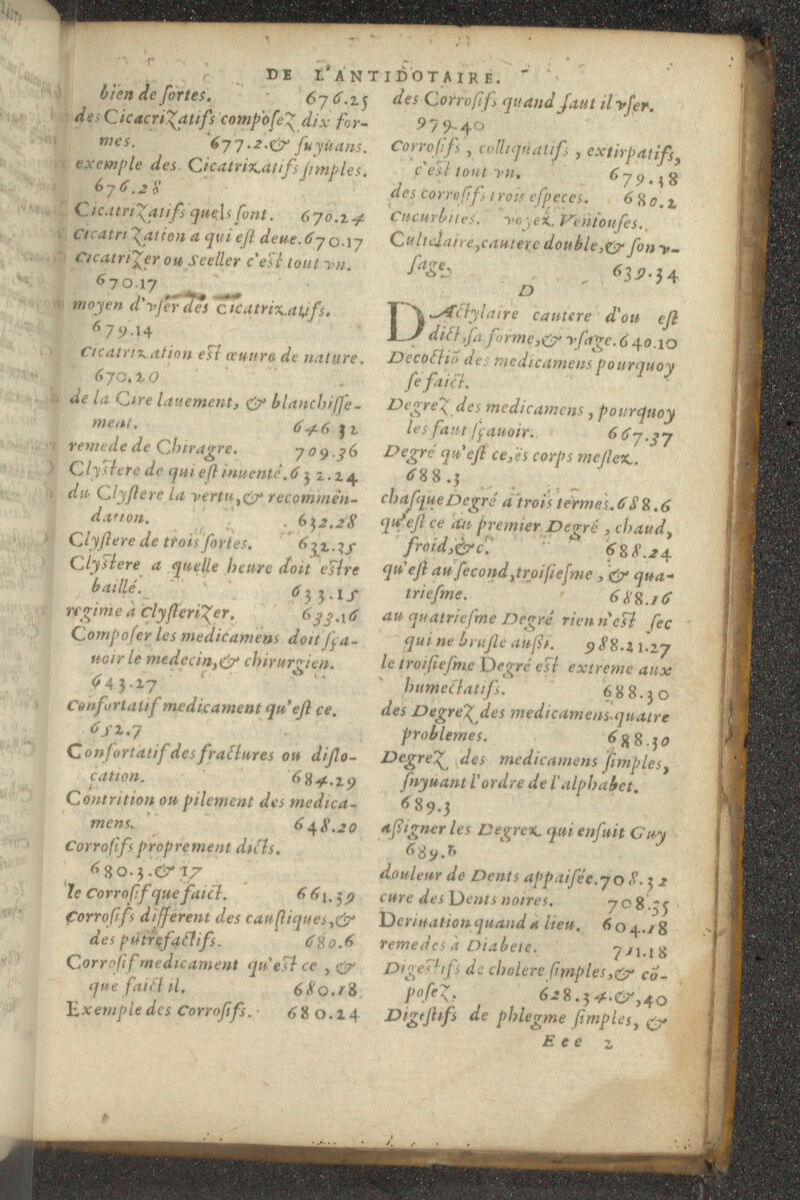 DE L'ANTIDOTAIRE.
bien de sortes. 676.25
des Cicacrizatifs composez dix for-
mes. 677.2.& suyuans.
exemple des Cicatrizatifs simples.
676.28
Cicatrizatifs quels sont. 670.24
Cicatrization a qui est deue. 670.17
Cicatrizer ou Seeller c'est tout vn.
670.17
moyen d'vser des Cicatrizatifs.
679.14
Cicatrization est œuure de nature.
670.20
de la Cire lauement, & blanchisse-
ment. 646 32
remede de Chiragre. 709.36
Clystere de qui est inuenté. 632.24
du Clystere la vertu, & recommen-
dation. 632.28
Clystere de trois sortes. 632.35
Clystere a quelle heure doit estre
baillé. 633.15
regime à clysterizer. 633.16
Composer les medicamens doit sça-
uoir le medecin, & chirurgien.
643.27
Confortatif medicament qu'est ce.
652.7
Confortatif des fractures ou dislo-
cation. 684.29
Contrition ou pilement des medica-
mens. 648.20
Corrosifs proprement dicts.
680.3.& 17
le Corrosif que faict. 661.39
Corrosifs different des caustiques, &
des putrefactifs. 680.6
Corrosif medicament qu'est ce, &
que faict il. 680.18
Exemple des Corrosifs. 680.24
des Corrosifs quand faut il vser.
979.40
Corrosifs, colliquatifs, extirpatifs,
c'est tout vn. 679.38
des corrosifs trois especes. 680.2
Cucurbites. voyez Ventouses.
Cultelaire, cautere double, & son v-
sage. 639.34
D
DActylaire cautere d'ou est
dict, sa forme, & vsage. 640.10
Decoctiõ des medicamens pourquoy
se faict.
Degrez des medicamens, pourquoy
les faut sçauoir. 667.37
Degré qu'est ce, és corps meslez.
688.3
chasque Degré a trois termes. 688.6
qu'est ce au premier Degré, chaud,
froid, &c. 688.24
qu'est au second, troisiesme, & qua-
triesme. 688.16
au quatriesme Degré rien n'est sec
qui ne brusle aussi. 988.21.27
le troisiesme Degré est extreme aux
humectatifs. 688.30
des Degrez des medicamens quatre
problemes. 688.30
Degrez des medicamens simples,
suyuant l'ordre de l'alphabet.
689.3
assigner les Degrez qui ensuit Guy
689.
douleur de Dents appaisée. 708.32
cure des Dents noires. 708.35
Deriuation quand a lieu. 604.18
remedes à Diabete. 711.18
Digestifs de cholere simples, & cõ-
posez. 628.34.&,40
Digestifs de phlegme simples, &
Eee 2